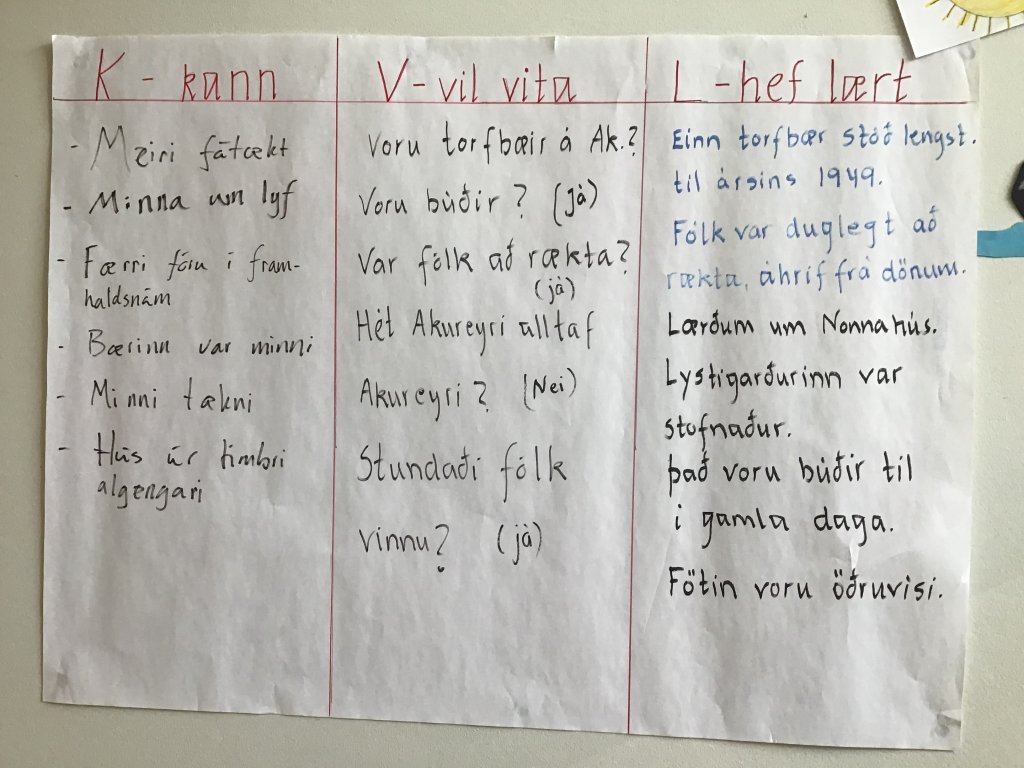 K - kann
- Meiri fátækt
- Minna um lyf
- Færri fóru í fram-
haldsnám
- Bærinn var minni
- Minni tækni
- Hús úr timbri
algengari
V-vil vita
Voru torfbæir á Ak.?
Voru búðir? (Já)
Var fólk að rækta?
(já)
Hét Akureyri alltaf
Akureyri? (Nei)
Stundaði fólk
vinnu? (já)
L-hef lært
Einn torfbær stóð lengst.
til ársins 1949.
Fólk var duglegt að
rækta, áhrif frá dönum.
Lærðum um Nonnahús.
Lystigarðurinn var
stofnaður.
það voru búðir til
í gamla daga.
Fötin voru öðruvísi.